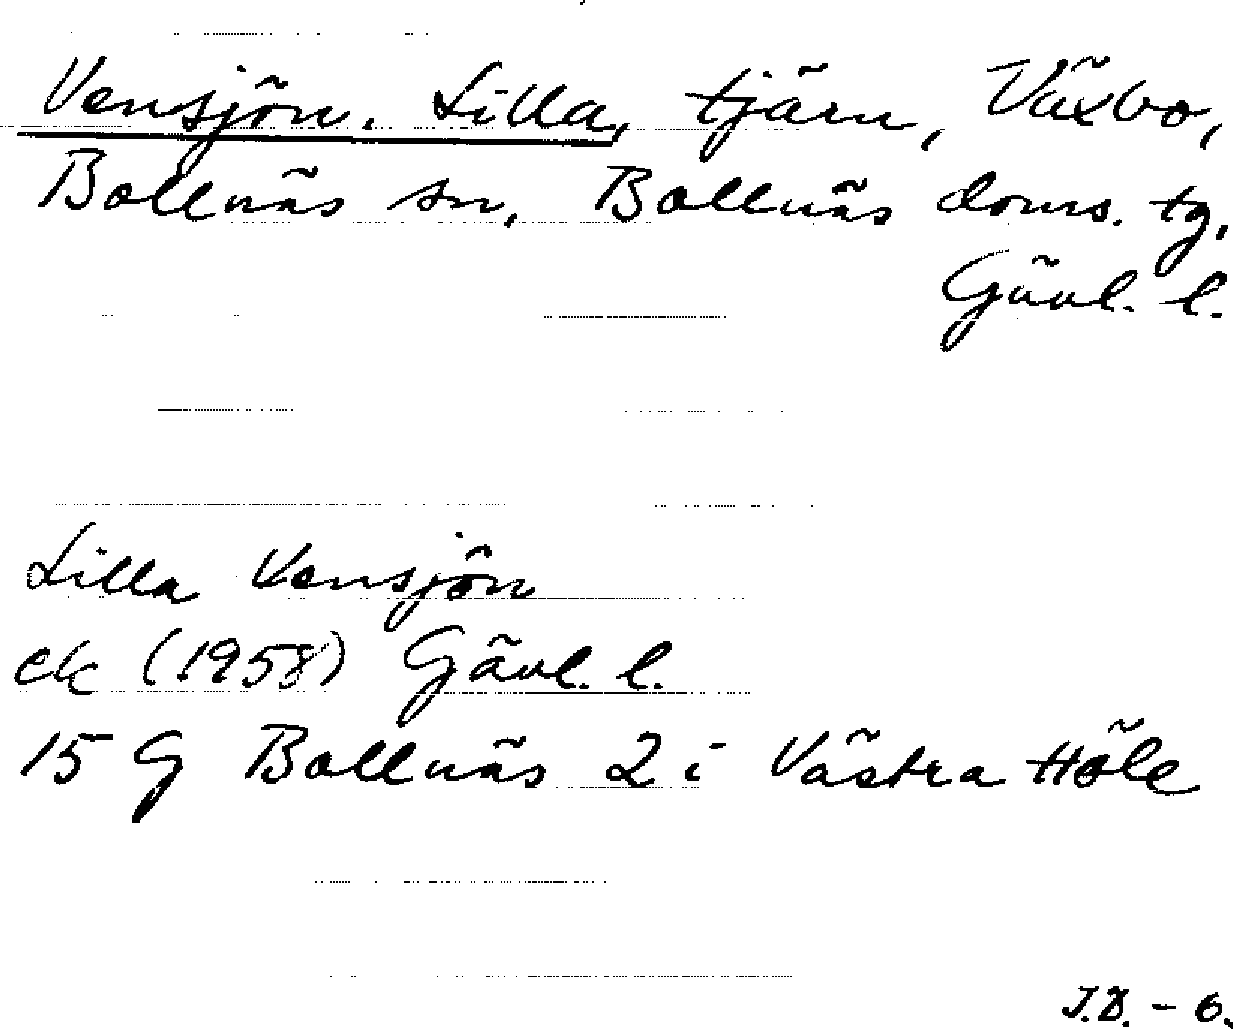 Vensjön, Lilla, tjärn, Växbo,
Bollnäs sn, Bollnäs doms. tg,
Gävl. l.
Lilla Vensjön
ek (1958) Gävl. l.
15 G Bollnäs 2 i Västra Höle